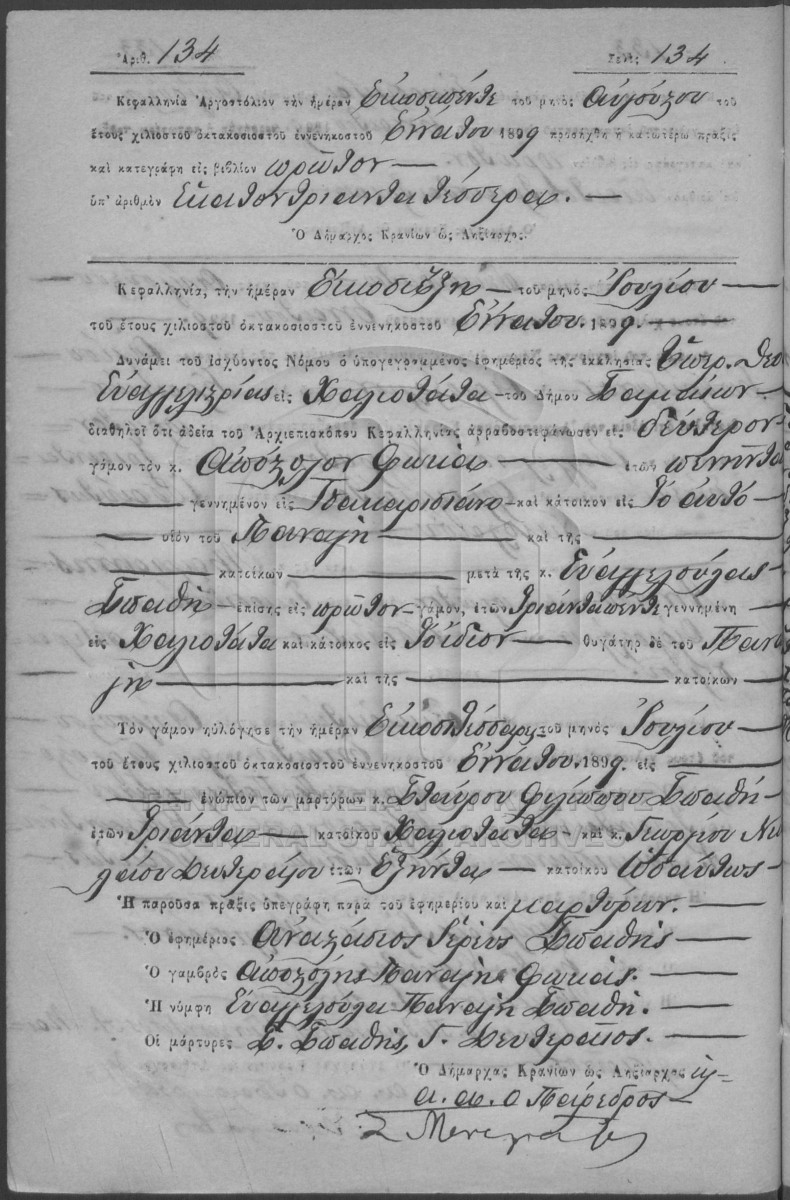 Ἀριθ. 134 Σελὶς 134
Κεφαλληνία Ἀργοστόλιον τὴν ἡμέραν Εἰκοσιπέντε τοῦ μηνὸς Αὐγούστου τοῦ
ἔτους χιλιοστοῦ ὀκτακοσιοστοῦ ἐννενηκοστοῦ Ἐννάτου 1899 προσήχθη ἡ κατωτέρω πρᾶξις
καὶ κατεγράφη εἰς βιβλίον πρῶτον
ὑπ' ἀριθμὸν Ἑκατὸν τριάντα τέσσερα.
Ὁ Δήμαρχος Κρανίων ὡς Ληξίαρχος.
Κεφαλληνία, τὴν ἡμέραν Εἰκοσιέξη τοῦ μηνὸς Ἰουλίου
τοῦ ἔτους χιλιοστοῦ ὀκτακοσιοστοῦ ἐννενηκοστοῦ Ἐννάτου. 1899.
Δυνάμει τοῦ ἰσχύοντος Νόμου ὁ ὑπογεγραμμένος ἐφημέριος τῆς ἐκκλησίας Ὑπερ. Θεο
Εὐαγγελιστρίας εἰς Χαλιοτάτα τοῦ Δήμου Σαμαίων
διαθηλοῖ ὅτι ἀδείᾳ τοῦ Ἀρχιεπισκόπου Κεφαλληνίας ἀρραβοστεφάνωσεν εἰς δεύτερον
γάμον τὸν κ. Ἀπόστολον Φωκᾶ ἐτῶν πενῆντα
γεννημένον εἰς Τσακαρισιάνο καὶ κάτοικον εἰς τὸ αὐτό
υἱὸν τοῦ Παναγῆ καὶ τῆς
κατοίκων μετὰ τῆς κ. Εὐαγγελούλας
Σπαθῆ ἐπίσης εἰς πρῶτον γάμον, ἐτῶν τριάντα πέντε γεννημένη
εἰς Χαλιοτάτα καὶ κάτοικος εἰς τὸ ἴδιον θυγάτηρ δὲ τοῦ Πανα
γῆ καὶ τῆς κατοίκων
Τὸν γάμον ηὐλόγησε τὴν ἡμέραν Εἰκοσιτέσσαρες τοῦ μηνὸς Ἰουλίου
τοῦ ἔτους χιλιοστοῦ ὀκτακοσιοστοῦ ἐννενηκοστοῦ Ἐννάτου. 1899. εἰς
ἐνώπιον τῶν μαρτύρων κ. Σταύρου Φιλίππου Σπαθῆ
ἐτῶν τριάντα κατοίκου Χαλιοτάτα καὶ κ. Γεωργίου Νικο
λάου Δευτεραίου ἐτῶν ἑξῆντα κατοίκου ὡσαύτως
Ἡ παροῦσα πρᾶξις ὑπεγράφη παρὰ τοῦ ἐφημερίου καὶ μαρτύρων.
Ὁ ἐφημέριος Ἀναστάσιος Ἱερεὺς Σπαθῆς
Ὁ γαμβρὸς Ἀποστόλης Παναγῆ Φωκᾶς.
Ἡ νύμφη Εὐαγγελούλα Παναγῆ Σπαθῆ.
Οἱ μάρτυρες Σ. Σπαθῆς, Γ. Δευτεραῖος.
Ὁ Δήμαρχος Κρανίων ὡς Ληξίαρχος
α. α. ὁ Πάρεδρος
ΓΕΝΙΚΑ ΑΡΧΕΙΑ ΤΟΥ ΚΡΑΤΟΥΣ
GENERAL STATE ARCHIVES